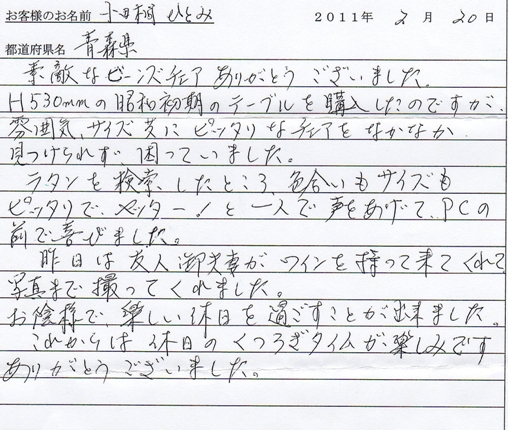 お客様のお名前 小田桐 ひとみ 2011年 2月 20日
都道府県名 青森県
素敵なビーンズチェア ありがとう ございました。
H530mmの昭和初期のテーブルを購入したのですが、
雰囲気、サイズ共に ピッタリなチェアをなかなか
見つけられず、困っていました。
ラタンを検索したところ、色合いもサイズも
ピッタリで、ヤッター!と一人で声をあげて、PCの
前で喜びました。
昨日は友人御夫妻が、ワインを持って来てくれて
写真まで撮ってくれました。
お陰様で、楽しい休日を過ごすことが出来ました。
これからは 休日の くつろぎタイムが 楽しみです
ありがとう ございました。